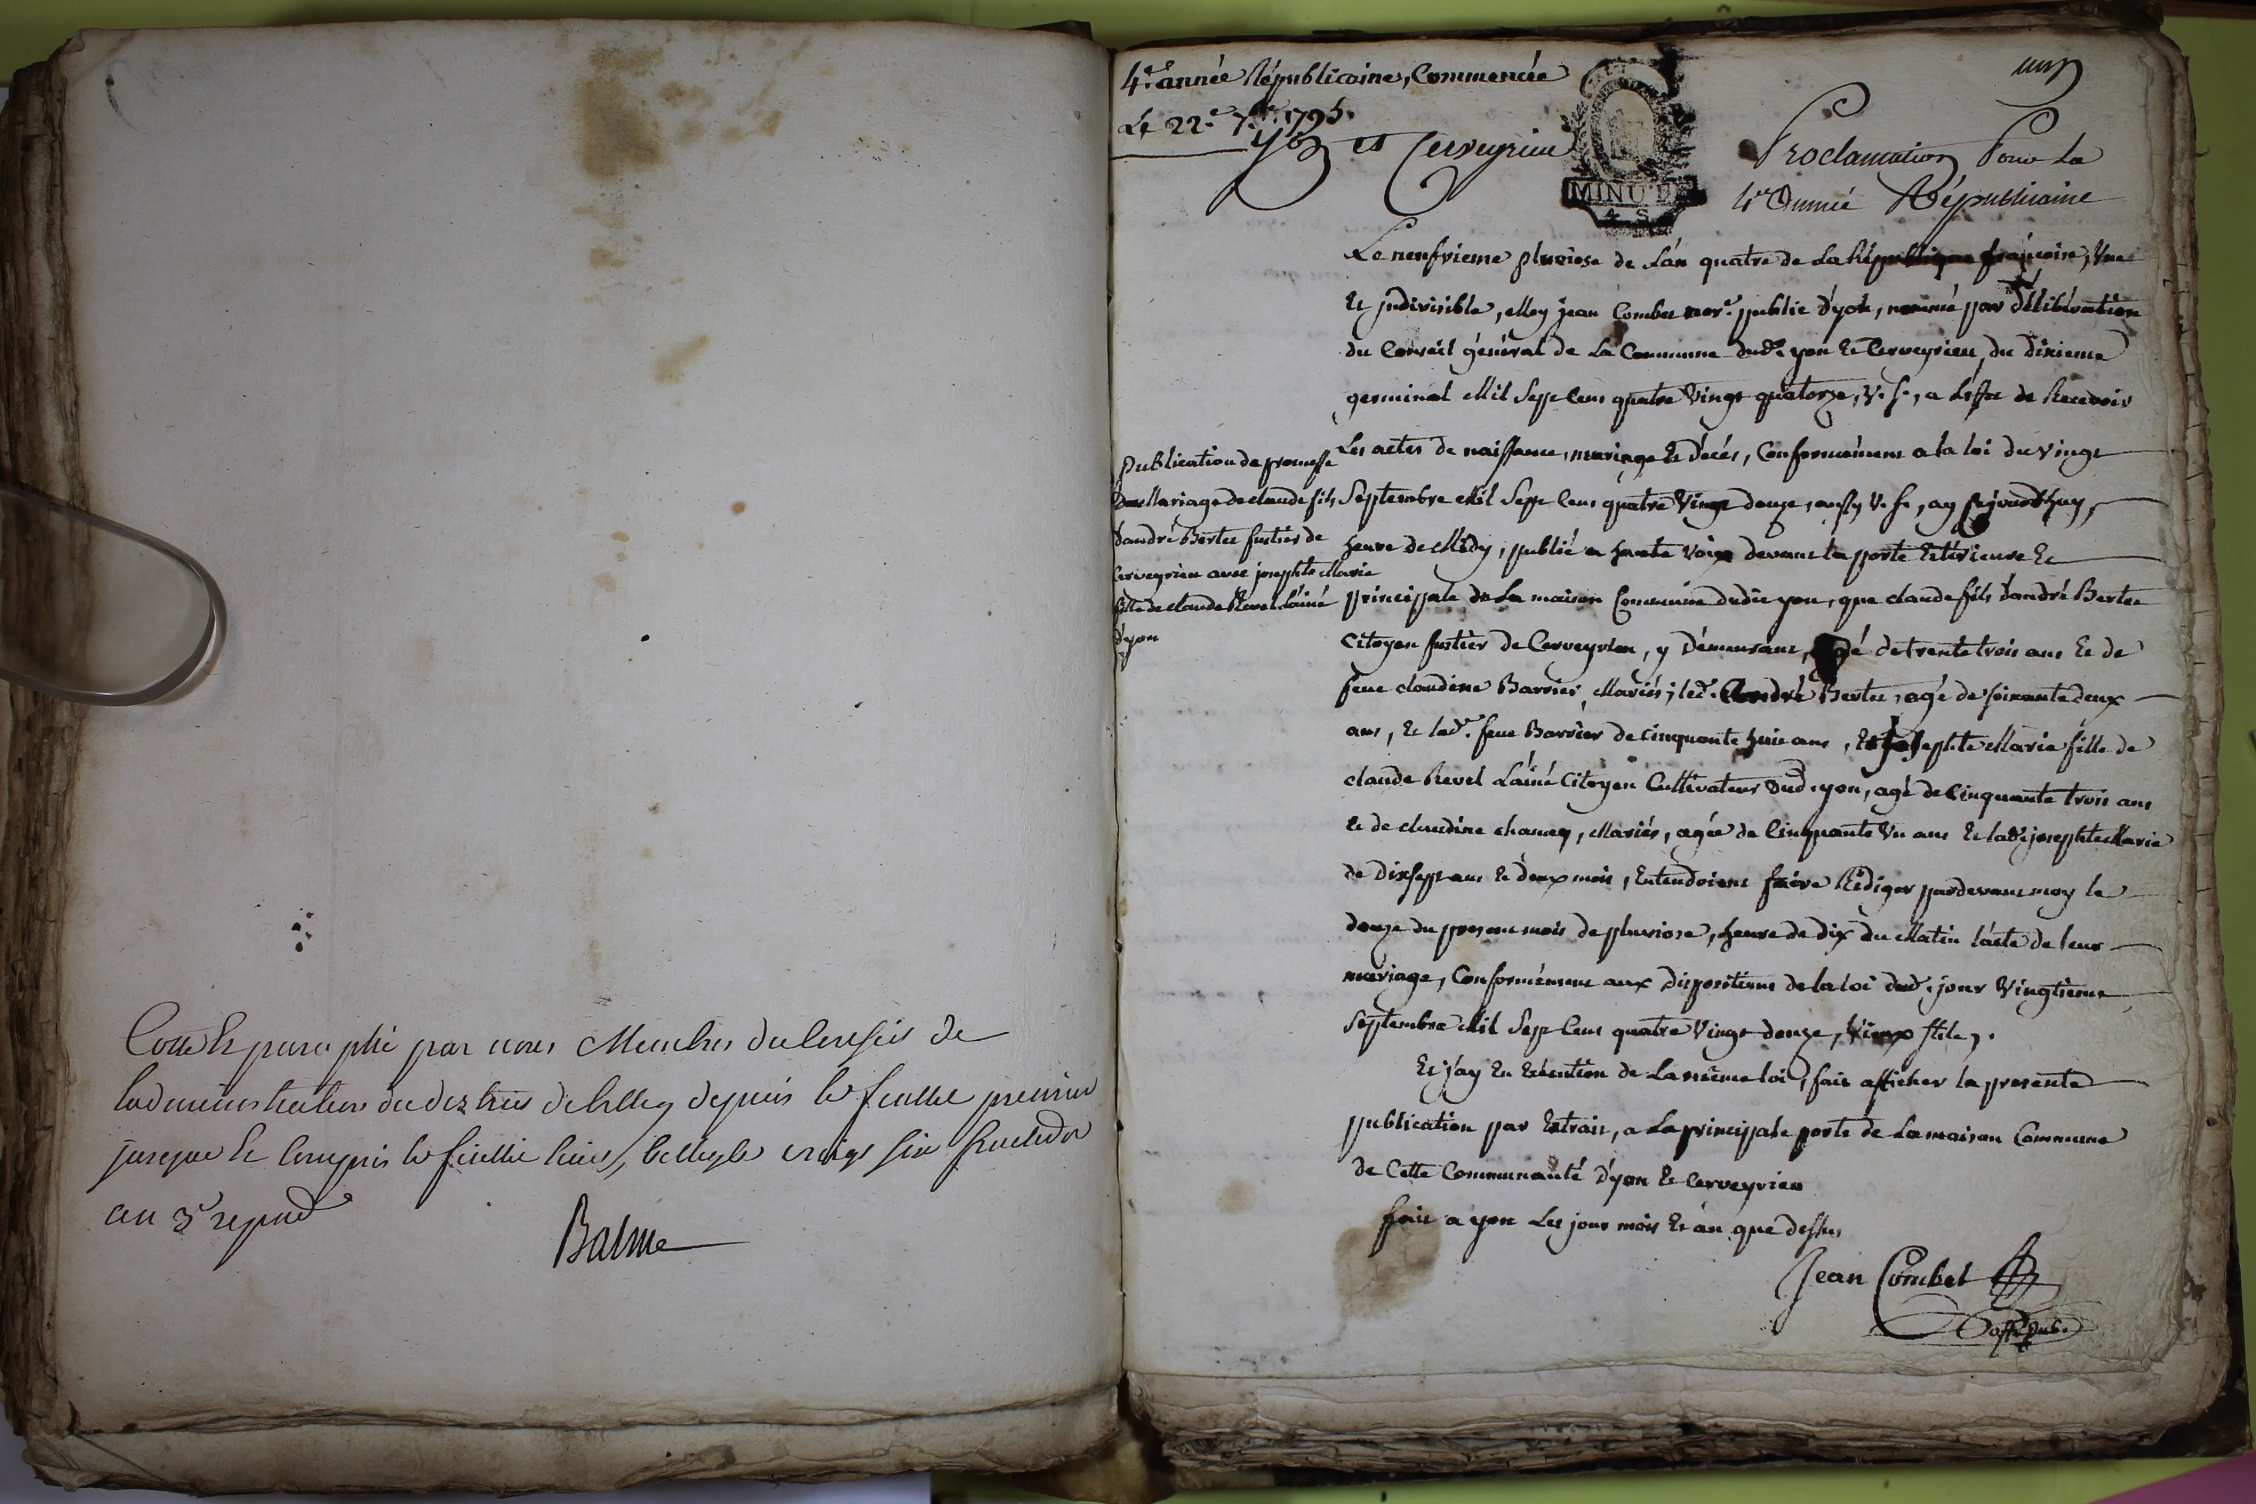 Cotté & paraphé par nous Membres du Conseil de
l'administration du district de belley depuis le feuillet premier
jusque & compris le feuillet huit, belley le vingt six fructidor
an 3e repud
Balme
4e. année Républicaine, Commencée
Le 22e. 7bre. 1795.
Yon et Cerveyrieu
MINUTE
4 S
un
Proclamation Pour La
4e Année Républicaine
Le neufvieme pluviose de L'án quatre de La République françoise, Une
Et jndivisible, Moy jean Combet public d'yon, nommé par Délibération
du Conseil général de La Commune dud. yon Et Cerveyrieu, du dixieme
germinal Mil Sept Cent quatre Vingt quatorze, V. S., a L'effet de Recevoir
Les actes de naissance, mariage Et Décés, Conformément a la loi du Vingt
Septembre Mil Sept Cent quatre Vingt douze, aussy V. S., ay cejourdhuy,
heure de Midy, publié a haute Voix devant la porte Extérieure Et
principale de La maison Commune dudit yon, que claude fils d'andré Bertet
Citoyen fustier de Cerveyrieu, y Démeurant, agé de trente trois ans Et de
feue claudine Barrier, Mariés; led. André Bertet, agé de soixante deux
ans, Et lad.e feue Barrier de cinquante huit ans, Et josephte Marie fille de
claude Revel L'áiné Citoyen Cultivateur dud. yon, agé de Cinquante trois ans
Et de claudine chanay, Mariés, agée de Cinquante Un ans Et lad. josephte Marie
de Dixsept ans Et deux mois, Entendoient faire Rédiger pardevant moy le
douze du present mois de pluviose, heure de dix du Matin l'acte de leur
mariage, Conformément aux Dispositions de la loi dud. jour Vingtieme
Septembre Mil Sept Cent quatre Vingt douze, Vieux stile,.
Et j'ay En Exécution de La même loi, fait afficher la presente
publication par Extrait, a La principale porte de La maison Commune
de Cette Communauté d'yon Et Cerveyrieu
fait a yon Les jour mois Et án que dessus
Jean Combet
off. pub.
Publication de promesse
de Mariage de claude fils
d'andré Bertet fustier de
Cerveyrieu avec josephte Marie
fille de claude Revel L'áiné
d'yon